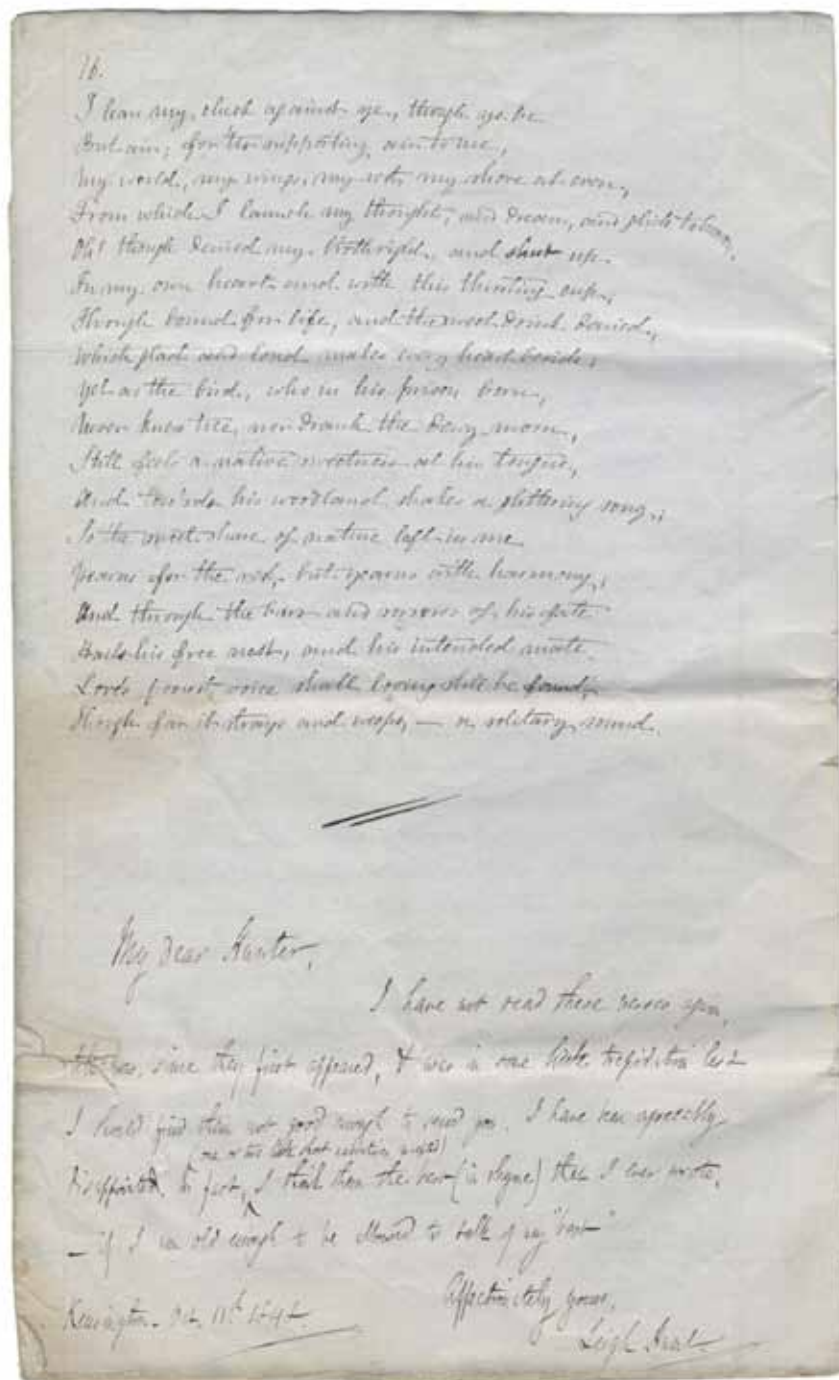 16.
I lean my cheek against eye, though eye be
But air; for 'tis supporting air to me,
My world, my wings, my my shore at even,
From which I launch my thought, and dream, and glide to heaven.
Oh! though denied my birthright, and shut up
In my own heart and with this thirsting cup,
Though bound for life, and the sweet drink denied,
Which glad and kind makes every heart beside;
Yet as the bird, who in his prison born,
Never knew tree, nor drank the dewy morn,
Still feels a native sweetness at his tongue,
And tow'rds his woodland shakes a glittering song,
So the sweet share of nature left in me
Yearns for the rest, but yearns with harmony;
And through the bars and sorrows of his fate
Hails his free nest, and his intended mate.
Love's forest voice shall loving still be found,
Though far it strays and weeps, — a solitary sound.
My dear Hunter,
I have not read these verses again,
since they first appeared, & was in some little trepidation lest
I should find them not good enough to send you. I have been agreeably
(one or two little excepted)
disappointed. In fact, I think them the best (in rhyme) that I ever wrote,
— if I am old enough to be allowed to talk of my "best"
Affectionately yours,
Kensington. Oct. 11th
Leigh Hunt.